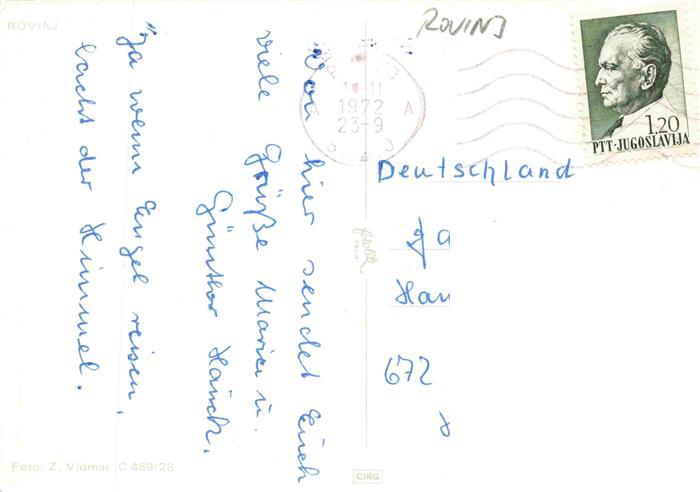 ROVINJ
ROVINJ
"Ja wenn Engel reisen,
lacht der Himmel.
Von hier sendet Euch
viele Grüße Maria u.
Günther Hauck.
1972
23-9
A
1.20
PTT·JUGOSLAVIJA
Deutschland
Fa
Hau
672
Foto: Z. Vidmar C 489/28
CIRG